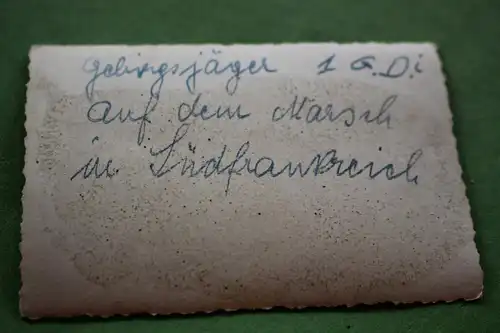 Gebirgsjäger 1 G.Di
auf dem Marsch
in Südfrankreich